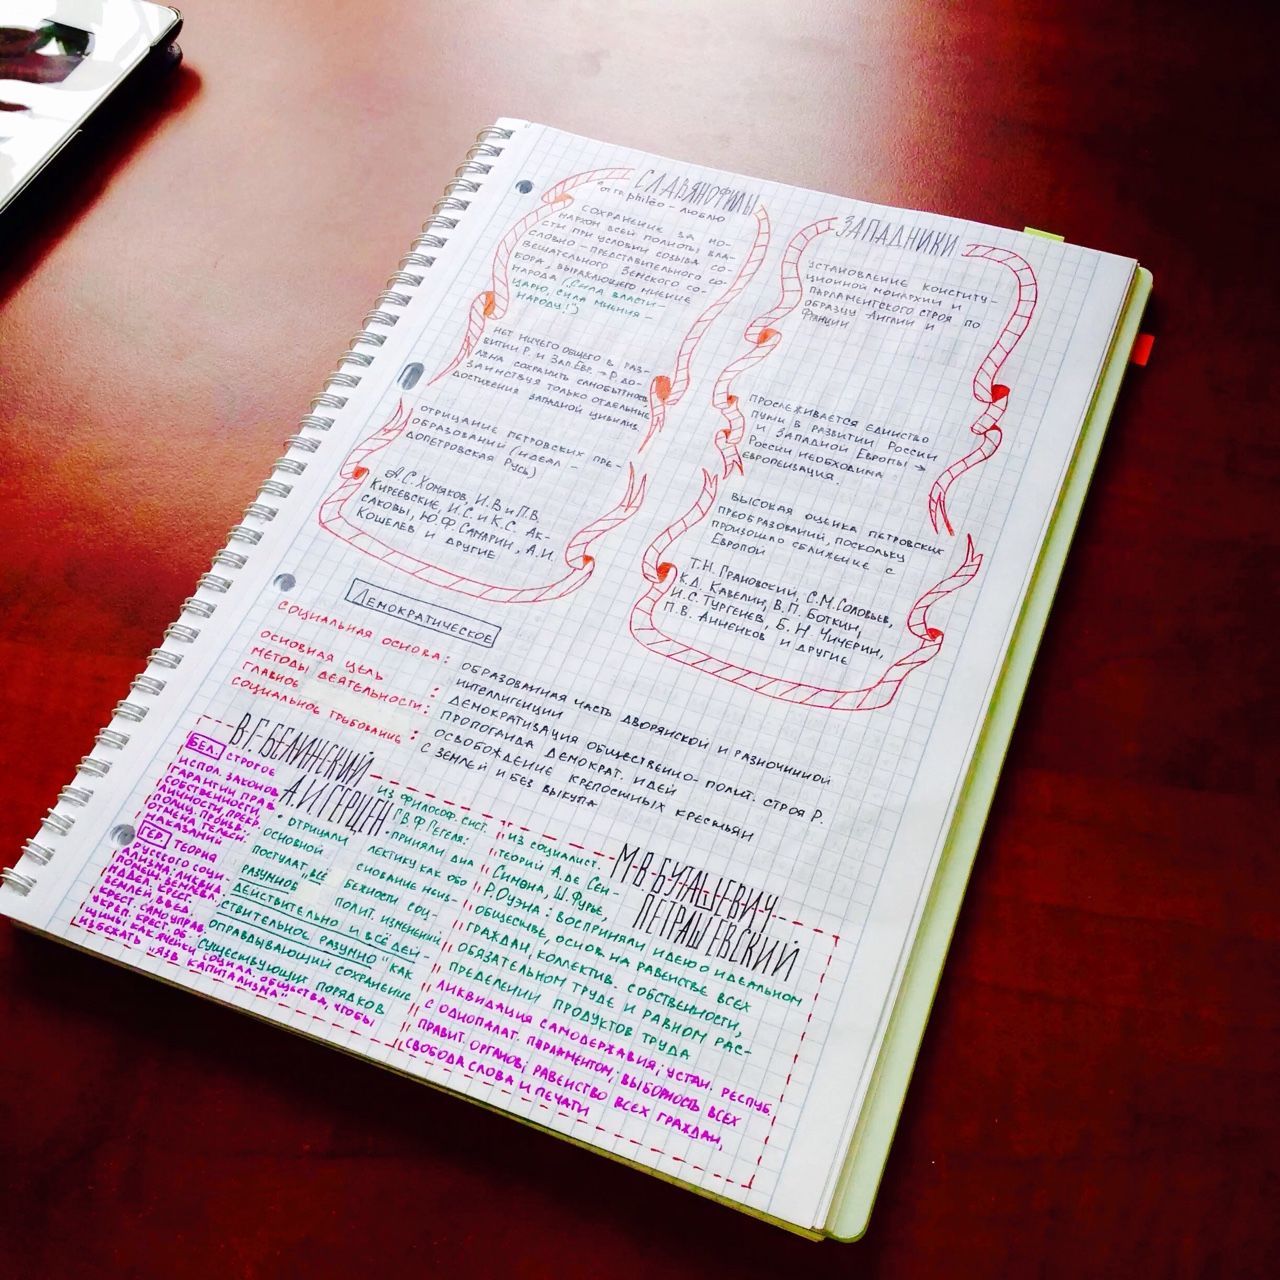 СЛАВЯНОФИЛЫ
*от гр. philéo - люблю
СОХРАНЕНИЕ ЗА МО-
НАРХОМ ВСЕЙ ПОЛНОТЫ ВЛА-
СТИ ПРИ УСЛОВИИ СОЗЫВА СО-
СЛОВНО-ПРЕДСТАВИТЕЛЬНОГО СО-
ВЕЩАТЕЛЬНОГО ЗЕМСКОГО СО-
БОРА, ВЫРАЖАЮЩЕГО МНЕНИЕ
НАРОДА (,,СИЛА ВЛАСТИ -
ЦАРЮ, СИЛА МНЕНИЯ -
НАРОДУ!")
НЕТ НИЧЕГО ОБЩЕГО В РАЗ-
ВИТИИ Р. И ЗАП. ЕВР. → Р. ДО-
ЛЖНА СОХРАНИТЬ САМОБЫТНОСТЬ
ЗАИМСТВУЯ ТОЛЬКО ОТДЕЛЬНЫЕ
ДОСТИЖЕНИЯ ЗАПАДНОЙ ЦИВИЛИЗ.
ОТРИЦАНИЕ ПЕТРОВСКИХ ПРЕ-
ОБРАЗОВАНИЙ (ИДЕАЛ -
ДОПЕТРОВСКАЯ РУСЬ)
А.С. ХОМЯКОВ, И.В И П.В.
КИРЕЕВСКИЕ, И.С. И К.С. АК-
САКОВЫ, Ю.Ф. САМАРИН, А.И.
КОШЕЛЕВ И ДРУГИЕ
ЗАПАДНИКИ
УСТАНОВЛЕНИЕ КОНСТИТУ-
ЦИОННОЙ МОНАРХИИ И
ПАРЛАМЕНТСКОГО СТРОЯ ПО
ОБРАЗЦУ АНГЛИИ И
ФРАНЦИИ
ПРОСЛЕЖИВАЕТСЯ ЕДИНСТВО
ПУТИ В РАЗВИТИИ РОССИИ
И ЗАПАДНОЙ ЕВРОПЫ →
РОССИИ НЕОБХОДИМА
ЕВРОПЕИЗАЦИЯ.
ВЫСОКАЯ ОЦЕНКА ПЕТРОВСКИХ
ПРЕОБРАЗОВАНИЙ, ПОСКОЛЬКУ
ПРОИЗОШЛО СБЛИЖЕНИЕ С
ЕВРОПОЙ
Т.Н. ГРАНОВСКИЙ, С.М. СОЛОВЬЕВ,
К.Д. КАВЕЛИН, В.П. БОТКИН,
И.С. ТУРГЕНЕВ, Б.Н. ЧИЧЕРИН,
П.В. АННЕНКОВ И ДРУГИЕ
ДЕМОКРАТИЧЕСКОЕ
СОЦИАЛЬНАЯ ОСНОВА: ОБРАЗОВАННАЯ ЧАСТЬ ДВОРЯНСКОЙ И РАЗНОЧИННОЙ
ИНТЕЛЛИГЕНЦИИ
ОСНОВНАЯ ЦЕЛЬ : ДЕМОКРАТИЗАЦИЯ ОБЩЕСТВЕННО-ПОЛИТ. СТРОЯ Р.
МЕТОДЫ ДЕЯТЕЛЬНОСТИ: ПРОПОГАНДА ДЕМОКРАТ. ИДЕЙ
ГЛАВНОЕ
СОЦИАЛЬНОЕ ТРЕБОВАНИЕ : ОСВОБОЖДЕНИЕ КРЕПОСТНЫХ КРЕСТЬЯН
С ЗЕМЛЕЙ И БЕЗ ВЫКУПА
В.Г. БЕЛИНСКИЙ
А.И. ГЕРЦЕН
БЕЛ. СТРОГОЕ
ИСПОЛ. ЗАКОНОВ
ГАРАНТИИ ПРАВ
СОБСТВЕННОСТИ,
ЛИЧНОСТИ, ПРЕКР.
ПОЛИЦ. ПРОИЗВ.
ОТМЕНА ТЕЛЕСН.
НАКАЗАНИЙ
ГЕР. ТЕОРИЯ
РУССКОГО СОЦИ-
АЛИЗМА: ЛИКВИД.
ПОМЕЩ. ЗЕМЛЕВЛА,
НАДЕЛ. КРЕСТ.
ЗЕМЛЕЙ, ВВЕД.
КРЕСТ. САМОУПРАВ.
УКРЕП. КРЕСТ. ОБ-
ЩИНЫ КАК ЯЧЕЙКИ СОЦИАЛ. ОБЩЕСТВА, ЧТОБЫ
ИЗБЕЖАТЬ ,,ЯЗВ КАПИТАЛИЗМА"
ИЗ ФИЛОСОФ. СИСТ.
Г.В.Ф ГЕГЕЛЯ:
• ПРИНЯЛИ ДИА
ЛЕКТИКУ КАК ОБО
СНОВАНИЕ НЕИЗ-
БЕЖНОСТИ СОЦ-
ПОЛИТ. ИЗМЕНЕНИЙ
• ОТРИЦАЛИ
ОСНОВНОЙ
ПОСТУЛАТ ,,ВСЁ
РАЗУМНОЕ
ДЕЙСТВИТЕЛЬНО И ВСЁ ДЕЙ-
СТВИТЕЛЬНОЕ РАЗУМНО" КАК
ОПРАВДЫВАЮЩИЙ СОХРАНЕНИЕ
СУЩЕСТВУЮЩИХ ПОРЯДКОВ
М.В. БУТАШЕВИЧ-
ПЕТРАШЕВСКИЙ
ИЗ СОЦИАЛИСТ.
ТЕОРИЙ А. ДЕ СЕН-
СИМОНА, Ш. ФУРЬЕ,
Р. ОУЭНА: ВОСПРИНЯЛИ ИДЕЮ О ИДЕАЛЬНОМ
ОБЩЕСТВЕ, ОСНОВ. НА РАВЕНСТВЕ ВСЕХ
ГРАЖДАН, КОЛЛЕКТИВ. СОБСТВЕННОСТИ,
ОБЯЗАТЕЛЬНОМ ТРУДЕ И РАВНОМ РАС-
ПРЕДЕЛЕНИИ ПРОДУКТОВ ТРУДА
ЛИКВИДАЦИЯ САМОДЕРЖАВИЯ; УСТАН. РЕСПУБ.
С ОДНОПАЛАТ. ПАРЛАМЕНТОМ; ВЫБОРНОСТЬ ВСЕХ
ПРАВИТ. ОРГАНОВ; РАВЕНСТВО ВСЕХ ГРАЖДАН,
СВОБОДА СЛОВА И ПЕЧАТИ